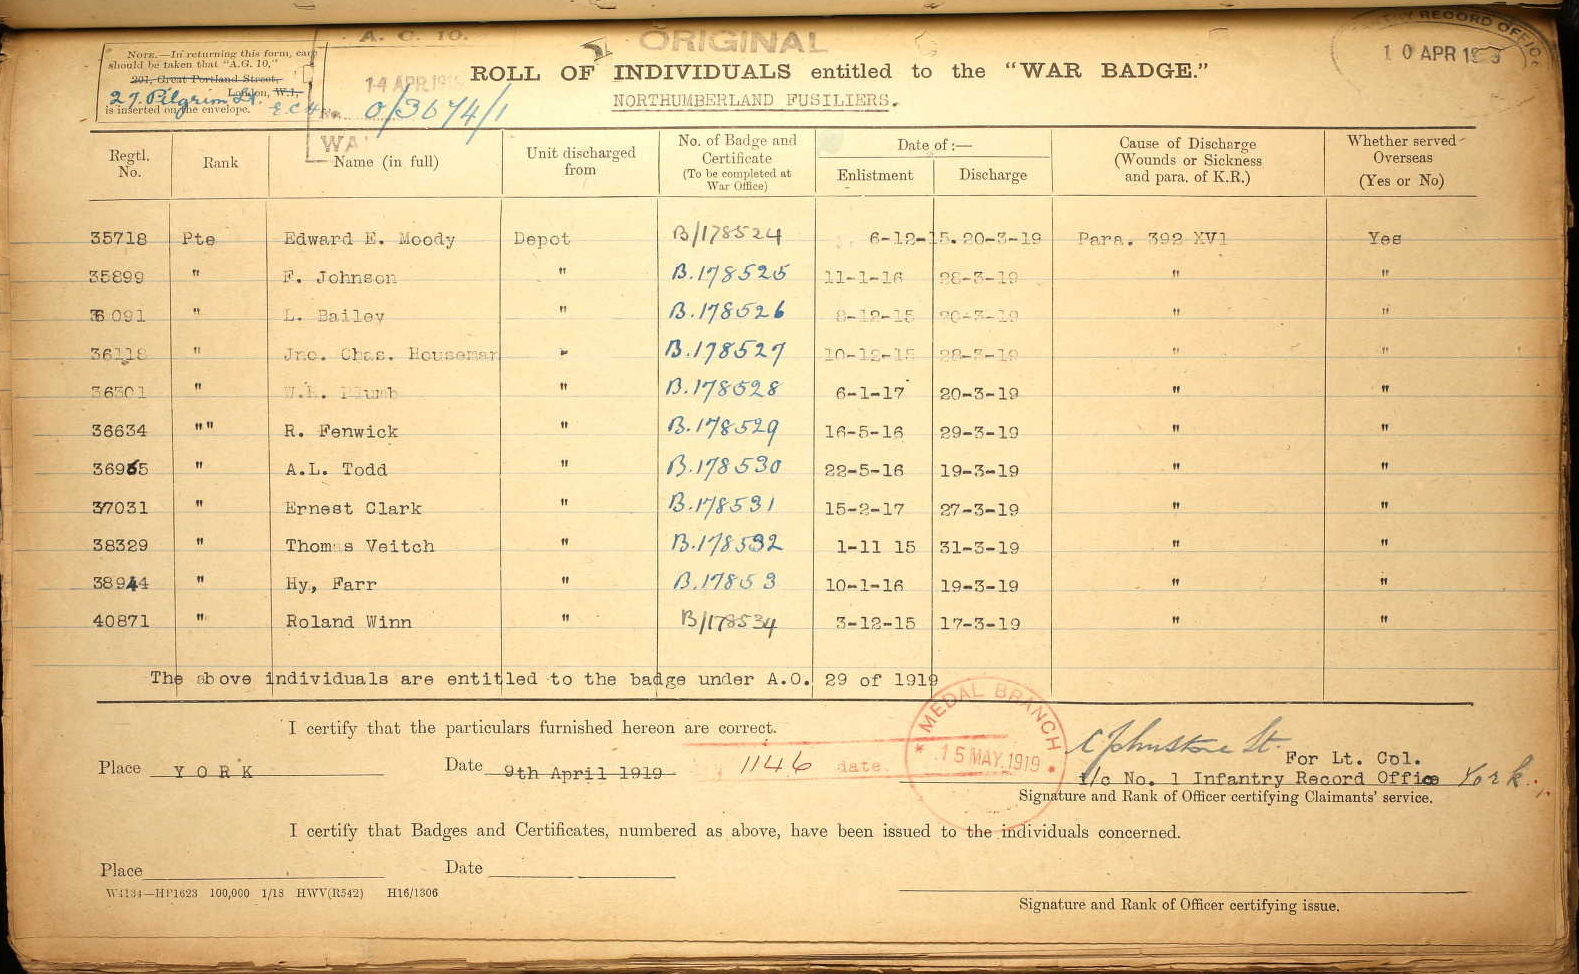 A. G. 10.
ORIGINAL
RECORD OFFICE
10 APR
NOTE.—In returning this form, care
should be taken that "A.G. 10,"
201, Great Portland Street,
London, W.1,
27, Pilgrim St. E.C.4
is inserted on the envelope.
14 APR 19
No. O/3674/1
WA
ROLL OF INDIVIDUALS entitled to the "WAR BADGE."
NORTHUMBERLAND FUSILIERS.
Regtl. No. Rank Name (in full) Unit discharged from No. of Badge and Certificate (To be completed at War Office) Date of :— Enlistment Discharge Cause of Discharge (Wounds or Sickness and para. of K.R.) Whether served Overseas (Yes or No)
35718 Pte Edward E. Moody Depot B/178524 6-12-15. 20-3-19 Para. 392 XV1 Yes
35899 " F. Johnson " B.178525 11-1-16 28-3-19 " "
36091 " L. Bailey " B.178526 8-12-15 20-3-19 " "
36118 " Jno. Chas. Houseman " B.178527 10-12-15 28-3-19 " "
36301 " Plumb " B.178528 6-1-17 20-3-19 " "
36634 "" R. Fenwick " B.178529 16-5-16 29-3-19 " "
36965 " A.L. Todd " B.178530 22-5-16 19-3-19 " "
37031 " Ernest Clark " B.178531 15-2-17 27-3-19 " "
38329 " Thomas Veitch " B.178532 1-11 15 31-3-19 " "
38944 " Hy, Farr " B.17853 3 10-1-16 19-3-19 " "
40871 " Roland Winn " B/178534 3-12-15 17-3-19 " "
The above individuals are entitled to the badge under A.O. 29 of 1919
I certify that the particulars furnished hereon are correct.
MEDAL BRANCH
15 MAY. 1919
Place YORK Date 9th April 1919
1146 date
Johnstone Lt.
For Lt. Col.
i/c No. 1 Infantry Record Office York
Signature and Rank of Officer certifying Claimants' service.
I certify that Badges and Certificates, numbered as above, have been issued to the individuals concerned.
Place Date
W4134—HP1623 100,000 1/18 HWV(R542) H16/1306
Signature and Rank of Officer certifying issue.